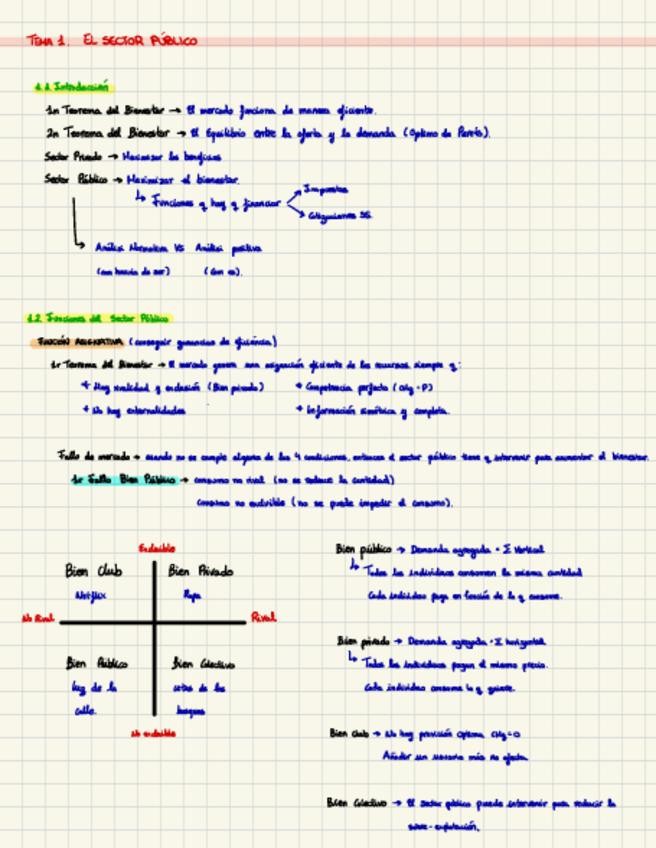 TEMA 1. EL SECTOR PÚBLICO
1.1. Introducción
1r Teorema del Bienestar → El mercado funciona de manera eficiente.
2n Teorema del Bienestar → El Equilibrio entre la oferta y la demanda (Óptimo de Pareto).
Sector Privado → Maximizar los beneficios
Sector Público → Maximizar el bienestar.
↳ Funciones q hay q financiar
Impuestos
Cotizaciones SS.
Análisi Normativa VS Análisi positiva
(como habría de ser) (Com es).
1.2. Funciones del Sector Público
FUNCIÓN ASIGNATIVA (conseguir ganancias de eficiencia)
1r Teorema del Bienestar → El mercado genera una asignación eficiente de los recursos siempre q:
+ Hay rivalidad y exclusión (Bien privado)
+ Competencia perfecta (CMg = P)
+ No hay externalidades
+ Información simétrica y completa.
Fallo de mercado → cuando no se cumple alguna de las 4 condiciones, entonces el sector público tiene q intervenir para aumentar el bienestar.
1r Fallo Bien Público → consumo no rival (no se reduce la cantidad)
consumo no exclusible (no se puede impedir el consumo).
Excluible
Bien Club
Bien Privado
Netflix
Ropa
No Rival
Rival
Bien Público
Bien Colectivo
luz de la
setas de los
calle.
bosques
No excluible
Bien público → Demanda agregada = Σ Vertical
↳ Todos los individuos consumen la misma cantidad
Cada individuo paga en función de lo q consume.
Bien privado → Demanda agregada = Σ horizontal
↳ Todos los individuos pagan el mismo precio.
Cada individuo consume lo q quiere.
Bien club → No hay provisión óptima, CMg=0
Añadir un usuario más no afecta.
Bien Colectivo → El sector público puede intervenir para reducir la
sobre-explotación.